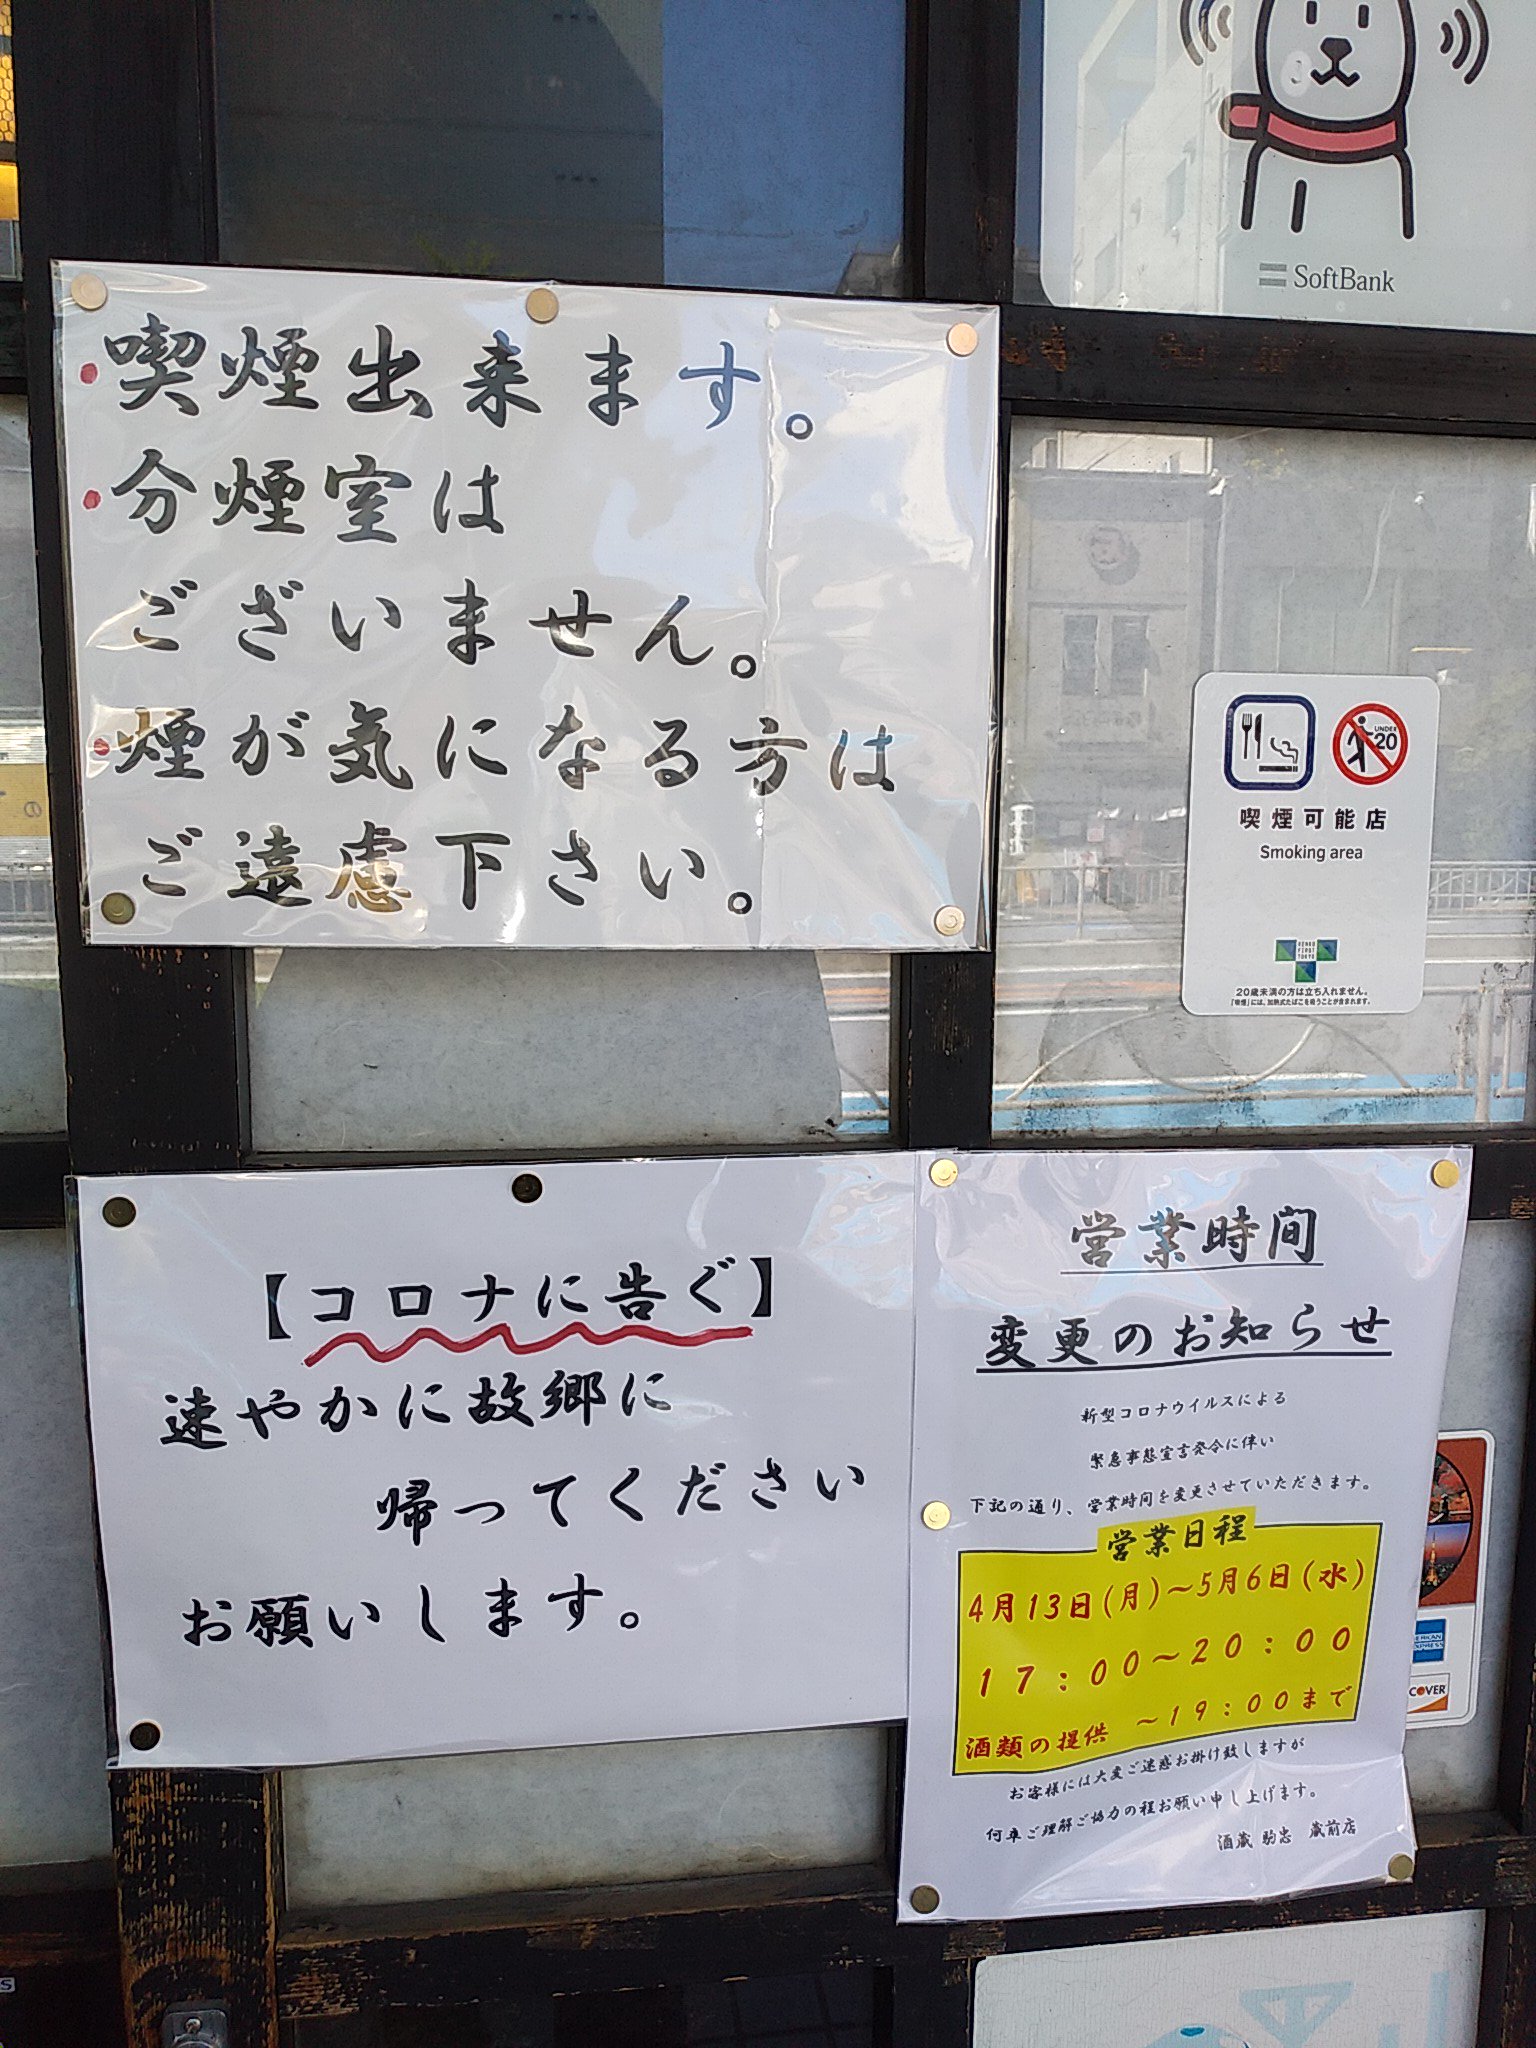 SoftBank
・喫煙出来ます。
・分煙室は
ございません。
・煙が気になる方は
ご遠慮下さい。
UNDER
20
喫煙可能店
Smoking area
KENKO
FIRST
TOKYO
20歳未満の方は立ち入れません。
「喫煙」には、加熱式たばこを吸うことが含まれます。
【コロナに告ぐ】
速やかに故郷に
帰ってください
お願いします。
営業時間
変更のお知らせ
新型コロナウイルスによる
緊急事態宣言発令に伴い
下記の通り、営業時間を変更させていただきます。
営業日程
4月13日(月)～5月6日(水)
17:00～20:00
酒類の提供 ～19:00まで
お客様には大変ご迷惑お掛け致しますが
何卒ご理解ご協力の程お願い申し上げます。
酒蔵 駒忠 蔵前店